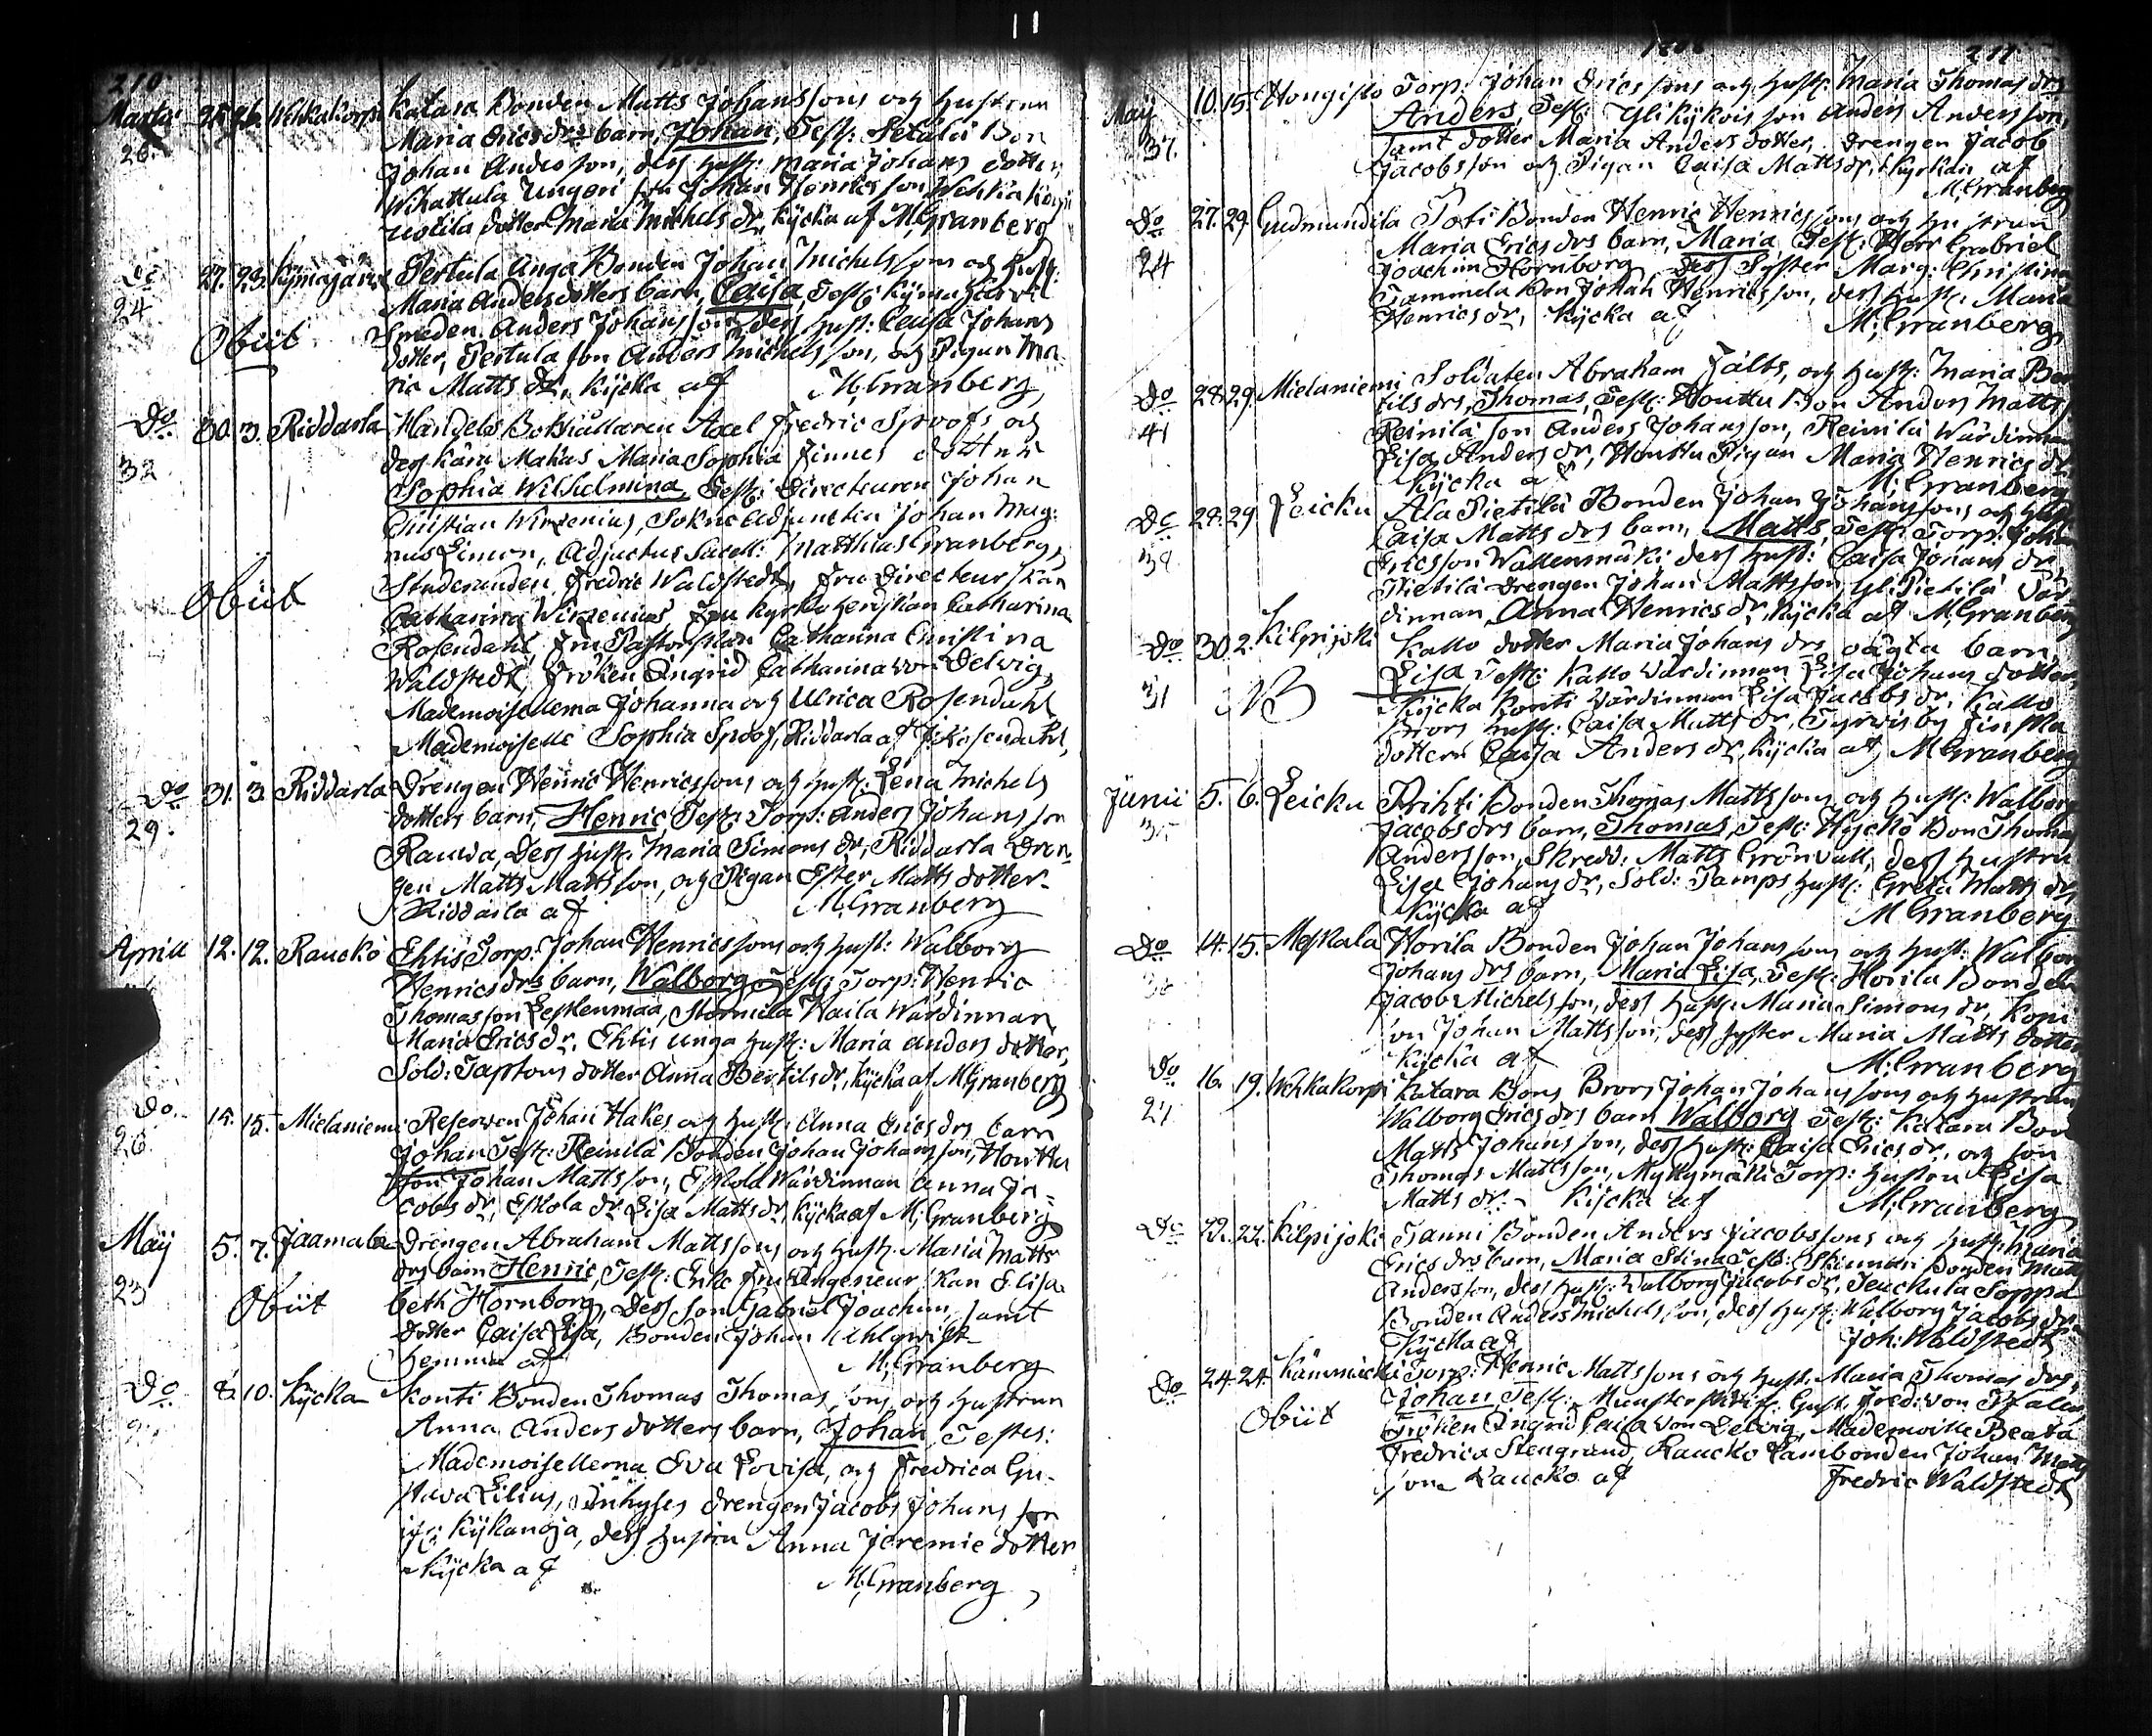 210
Martii 25. 26. Wehkakorpi Katara Bonden Matts Johanssons och hustrun
26. Maria Ericsdrs barn, Johan, Test: Setälä Bon
Johan Andersson, dess hust: Maria Johans dotter,
Wihattula Ungeri son Johan Henricsson Wehkakorpi
dotter Maria Michels dr, Kijcka af M: Granberg
Do 27. 28. Kijmäjärvi Pertula Unga Bonden Johan Michelssons och hust:
24 Maria Andersdotters barn, Caisa, Test: Kijmäjärvi
Obiit Smeden Anders Johansson, dess hust: Caisa Johans
dotter, Pertula son Anders Michelsson, och Pigan Ma-
ria Matts dr, Kijcka af M: Granberg
Do 30. 3. Riddarla Handels Bokhållaren Axel Fredric Spoofs och
32 dess kära Makas Maria Sophia Finnes dotter
Sophia Wilhelmina, Test: Directeuren Johan
Christian Wirzenius, Sokne Adjuncten Johan Mag-
nus Limon, Adjuctus Sacell: Matthias Granberg,
Studeranden Fredric Waldstedt, Fru Directeurskan
Obiit Catharina Wirzenius, Fru Kyrkoherdskan Catharina
Rosendahl, Fru Pastorskan Catharina Christina
Waldstedt, Fröken Ingrid Catharina von Delwig,
Mademoisellerna Johanna och Ulrica Rosendahl
Mademoiselle Sophia Spoof, Riddarla af Rosendahl,
Do 31. 3. Riddarla Drengen Henric Henricssons och hust: Lena Michels
29. dotters barn, Henric, Test: Torp: Anders Johansson
Rauwa, dess hust: Maria Simons dr, Riddarla Dren-
gen Matts Mattsson, och Pigan Ester Matts dotter
Riddarla af M: Granberg
Aprill 12. 12. Rauckö Ehtis Torp: Johan Henricssons och hust: Walborg
Henricsdrs barn, Walborg, Test: Torp: Henric
Thomasson Leskenmaa, Stormila Haila Wärdinnan
Maria Erics dr, Ehtis unga hust: Maria Anders dotter,
Sold: Taptons dotter Anna Bertils dr, Kijcka af M: Granberg
Do. 14. 15. Mielaniemi Reserven Johan Hakes och hust: Anna Ericsdrs barn
26. Johan, Test: Reinilä Bonden Johan Johansson, Houttu
son Johan Mattsson, Eskola Wärdinnan Anna Ja-
cobs dr, Eskola dr Lisa Matts dr, Kijcka af M: Granberg
Maij 5. 7. Jaamala Drengen Abraham Mattssons och hust: Maria Matts
23 drs barn Henric, Test: Enke Fru Ingeneurskan Elisa
Obiit beth Hornborg, dess son Gabriel Joachim, samt
dotter Caisa Lisa, Bonden Johan Wehlqwist
hemma af M: Granberg
Do 8. 10. Kijcka Konti Bonden Thomas Thomassons och hustrun
Anna Anders dotters barn, Johan, Testes:
Mademoisellerna Eva Lovisa, och Fredrica Gu-
stava Lilius, Inhyses drengen Jacob Johansson
ifr: Kijkänoja, dess hustru Anna Jeremie dotter
Kijcka af M: Granberg
211
Maij 10. 15. Hongisto Torp: Johan Ericssons och hust: Maria Thomas drs
37. Anders, Test: Ylikijkois son Anders Andersson,
samt dotter Maria Anders dotter, drengen Jacob
Jacobsson och Pigan Caisa Matts dr, i kyrkan af
M: Granberg
Do 27. 29. Gudmundila Poti Bonden Henric Henricssons och hustrun
24 Maria Ericsdrs barn, Maria, Test: Herr Gabriel
Joachim Hornborg, dess Syster Marg: Christina
Tammela Bon Johan Henricsson, dess hust: Maria
Henrics dr, Kijcka af M: Granberg
Do 28. 29. Mielaniemi Soldaten Abraham Fälts, och hust: Maria Ber
41 tils drs, Thomas, Test: Houttu Bon Anders Matts
Reinilä son Anders Johansson, Reinilä Wärdinnan
Lisa Anders dr, Houttu Pigan Maria Henrics dr
Kijcka af M: Granberg
Do 28. 29 Leicku Ala Pietilä Bonden Johan Johanssons och hust:
38. Caisa Matts drs barn, Matts, Test: Torp: Johan
Ericsson Wallenmäki dess hust: Caisa Johans dr,
Pietilä drengen Johan Mattsson, Yli Pietilä Vär
dinnan Anna Henrics dr, Kijcka af M: Granberg
Do 30. 2. Kilpijoki Kallo dotter Maria Johans drs oägta barn,
31 NB Lisa, Test: Kallo Wärdinnan Lisa Johans dotter,
Kijcka Konti Wärdinnan Lisa Jacobs dr, Kallo
Brors hust: Caisa Matts dr, Tyrwis by
dottern Caisa Anders dr, Kijcka af M: Granberg
Junii 5. 6. Leicku Prihti Bonden Thomas Mattssons och hust: Walborg
Jacobs drs barn, Thomas, Test: Hyckö Bon Thomas
Andersson, Skredd: Matts Grönvall, dess hustru
Lisa Johans dr, Sold: Tamps hust: Greta Matts dr,
Kijcka af M: Granberg
Do 14. 15. Meskala Horila Bonden Johan Johanssons och hust: Walborg
Johans drs barn, Maria Lisa, Test: Horila Bonden
Jacob Michelsson, dess hust: Maria Simons dr,
son Johan Mattsson, dess syster Maria Matts dotter
Kijcka af M: Granberg
Do 16. 19. Wehkakorpi Katara Bons Brors Johan Johanssons och hustrun
Walborg Ericsdrs barn Walborg, Test: Katara Bon
Matts Johansson, dess hust: Caisa Erics dr, och son
Thomas Mattsson, Myllymäki Torp: hustru Lisa
Matts dr. Kijcka af M: Granberg
Do 22. 22. Kilpijoki Tanni Bonden Anders Jacobssons och hust: Maria
Erics drs barn, Maria Stina, Test: Skinnari Bonden Matts
Andersson, dess hust: Walborg Jacobs dr, Jeuckula Seppä
Bonden Anders Michelsson, dess hust: Walborg Jacobs dr
Kijcka af Joh: Waldstedt
Do 24. 24. Torp: Henric Mattssons och hust: Maria Thomas drs,
Obiit Johan, Test: Munsterskrif: Gust: Fred: von
Fröken Ingrid Caisa von Delwig, Mademoiselle Beata
Fredrica Stengrund, Rauckö Lambonden Johan Matts
son, Rauckö af Fredric Waldstedt